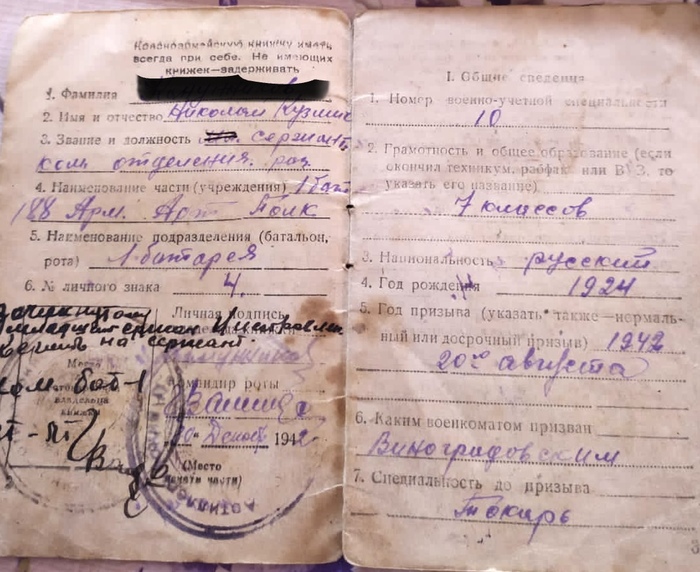 Красноармейскую книжку иметь
всегда при себе. Не имеющих
книжек—задерживать
1. Фамилия
2. Имя и отчество Николай Кузмич
3. Звание и должность сержант
ком отделения раз.
4. Наименование части (учреждения) 1 бат
188 Арм. Арт Полк
5. Наименование подразделения (батальон,
рота) 1. батарея
6. № личного знака 4.
Личная подпись
зачеркнутому
младший сержант и исправлен
верить на сержант.
Место
ком бат-1
владельца
книжки
Командир роты
ст-лт
"10" Декаб 1942
(Место
печати части)
I. Общие сведения
1. Номер военно-учетной специальности
10
2. Грамотность и общее образование (если
окончил техникум, рабфак или ВУЗ, то
указать его название)
7 классов
3. Национальность русский
4. Год рождения 1924
5. Год призыва (указать также—нормаль-
ный или досрочный призыв) 1942
20го августа
6. Каким военкоматом призван
Виноградовским
7. Специальность до призыва
Токарь
3